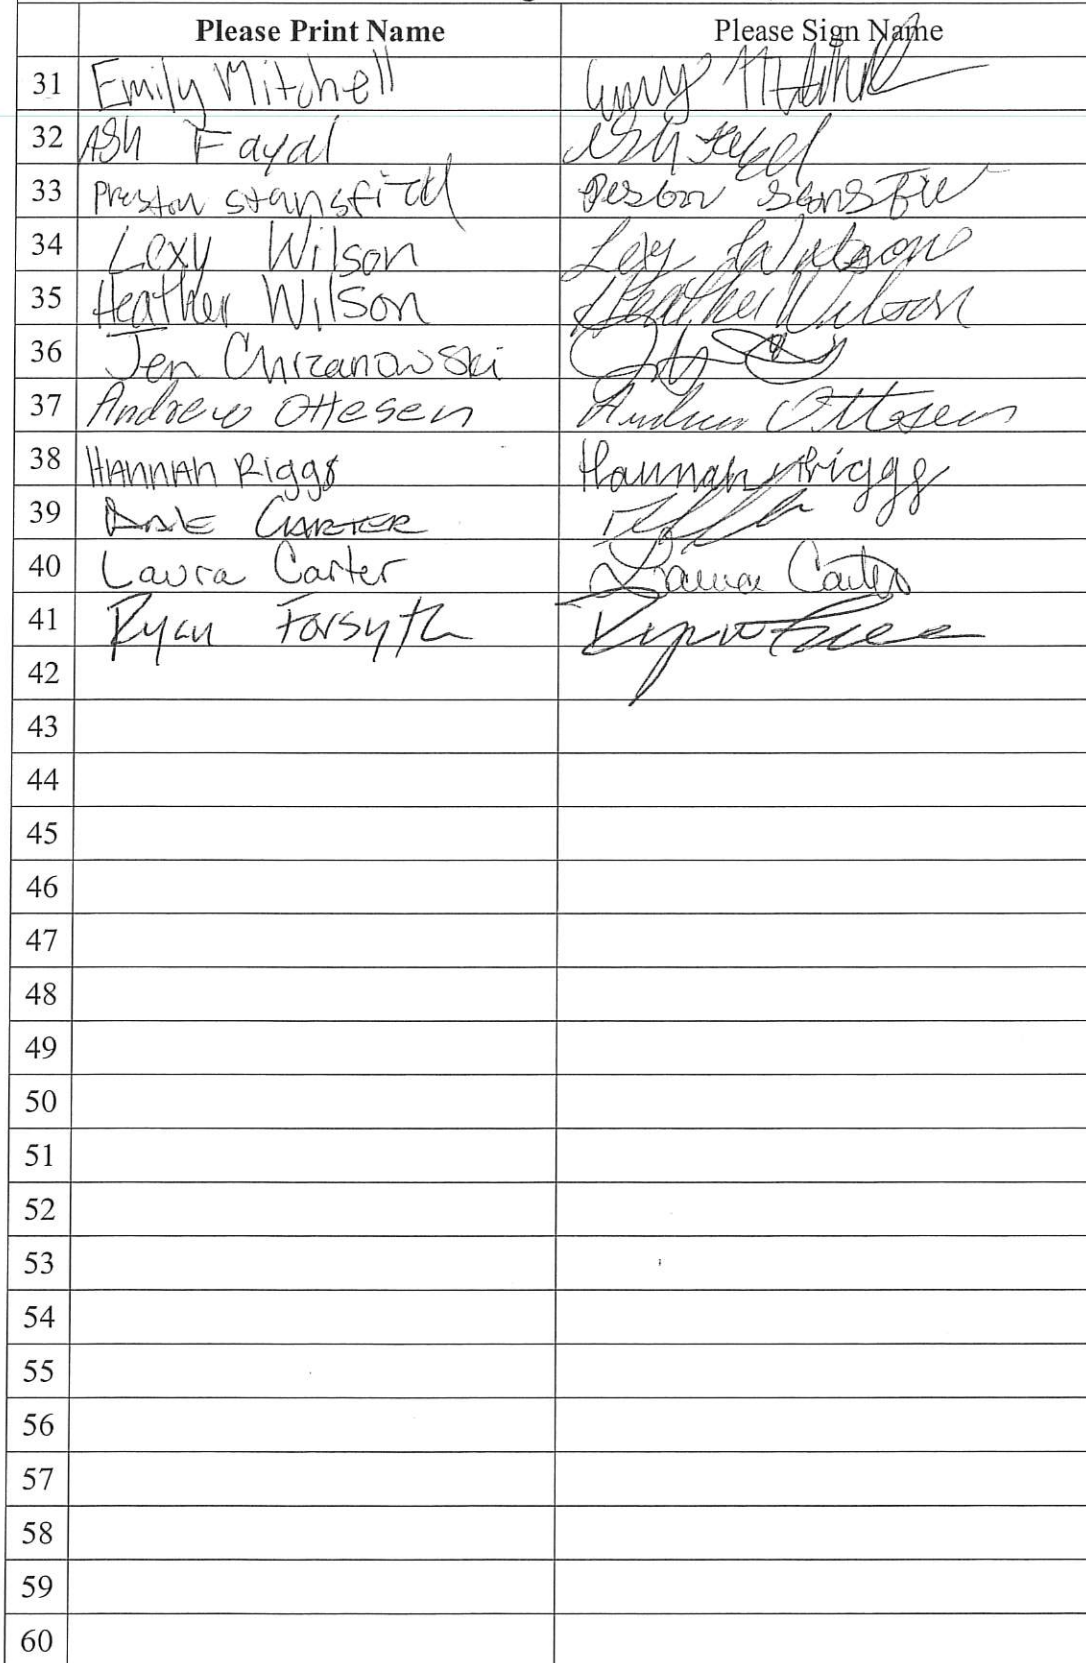 Please Print Name Please Sign Name
31 Emily Mitchell
32 Ash Fayal
33 Preston Stansfield
34 Lexy Wilson Lexy Wilson
35 Heather Wilson Heather Wilson
36 Jen Chrzanowski
37 Andrew Ottesen Andrew Ottesen
38 HANNAH Riggs Hannah Riggs
39 CARTER
40 Laura Carter Laura Carter
41 Ryan Forsyth
42
43
44
45
46
47
48
49
50
51
52
53
54
55
56
57
58
59
60